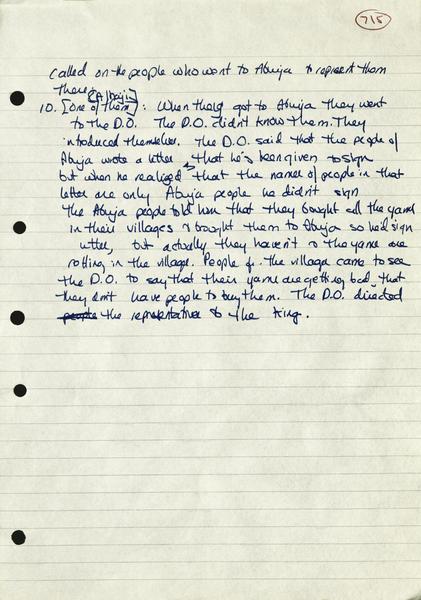 715
called on the people who went to Abuja to represent them
there. (Alhaji)
10. [one of them]: When they got to Abuja they went
to the D.O. The D.O. didn't know them. They
introduced themselves. The D.O. said that the people of
Abuja wrote a letter that he's been given to sign
but when he realised that the names of people in that
letter are only Abuja people he didn't sign
The Abuja people told him that they bought all the yams
in their villages & brought them to Abuja so he'd sign
letter, but actually they haven't & the yams are
rotting in the village. People fr. the village came to see
the D.O. to say that their yams are getting bad, that
they don't have people to buy them. The D.O. directed
people the representatives to the King.